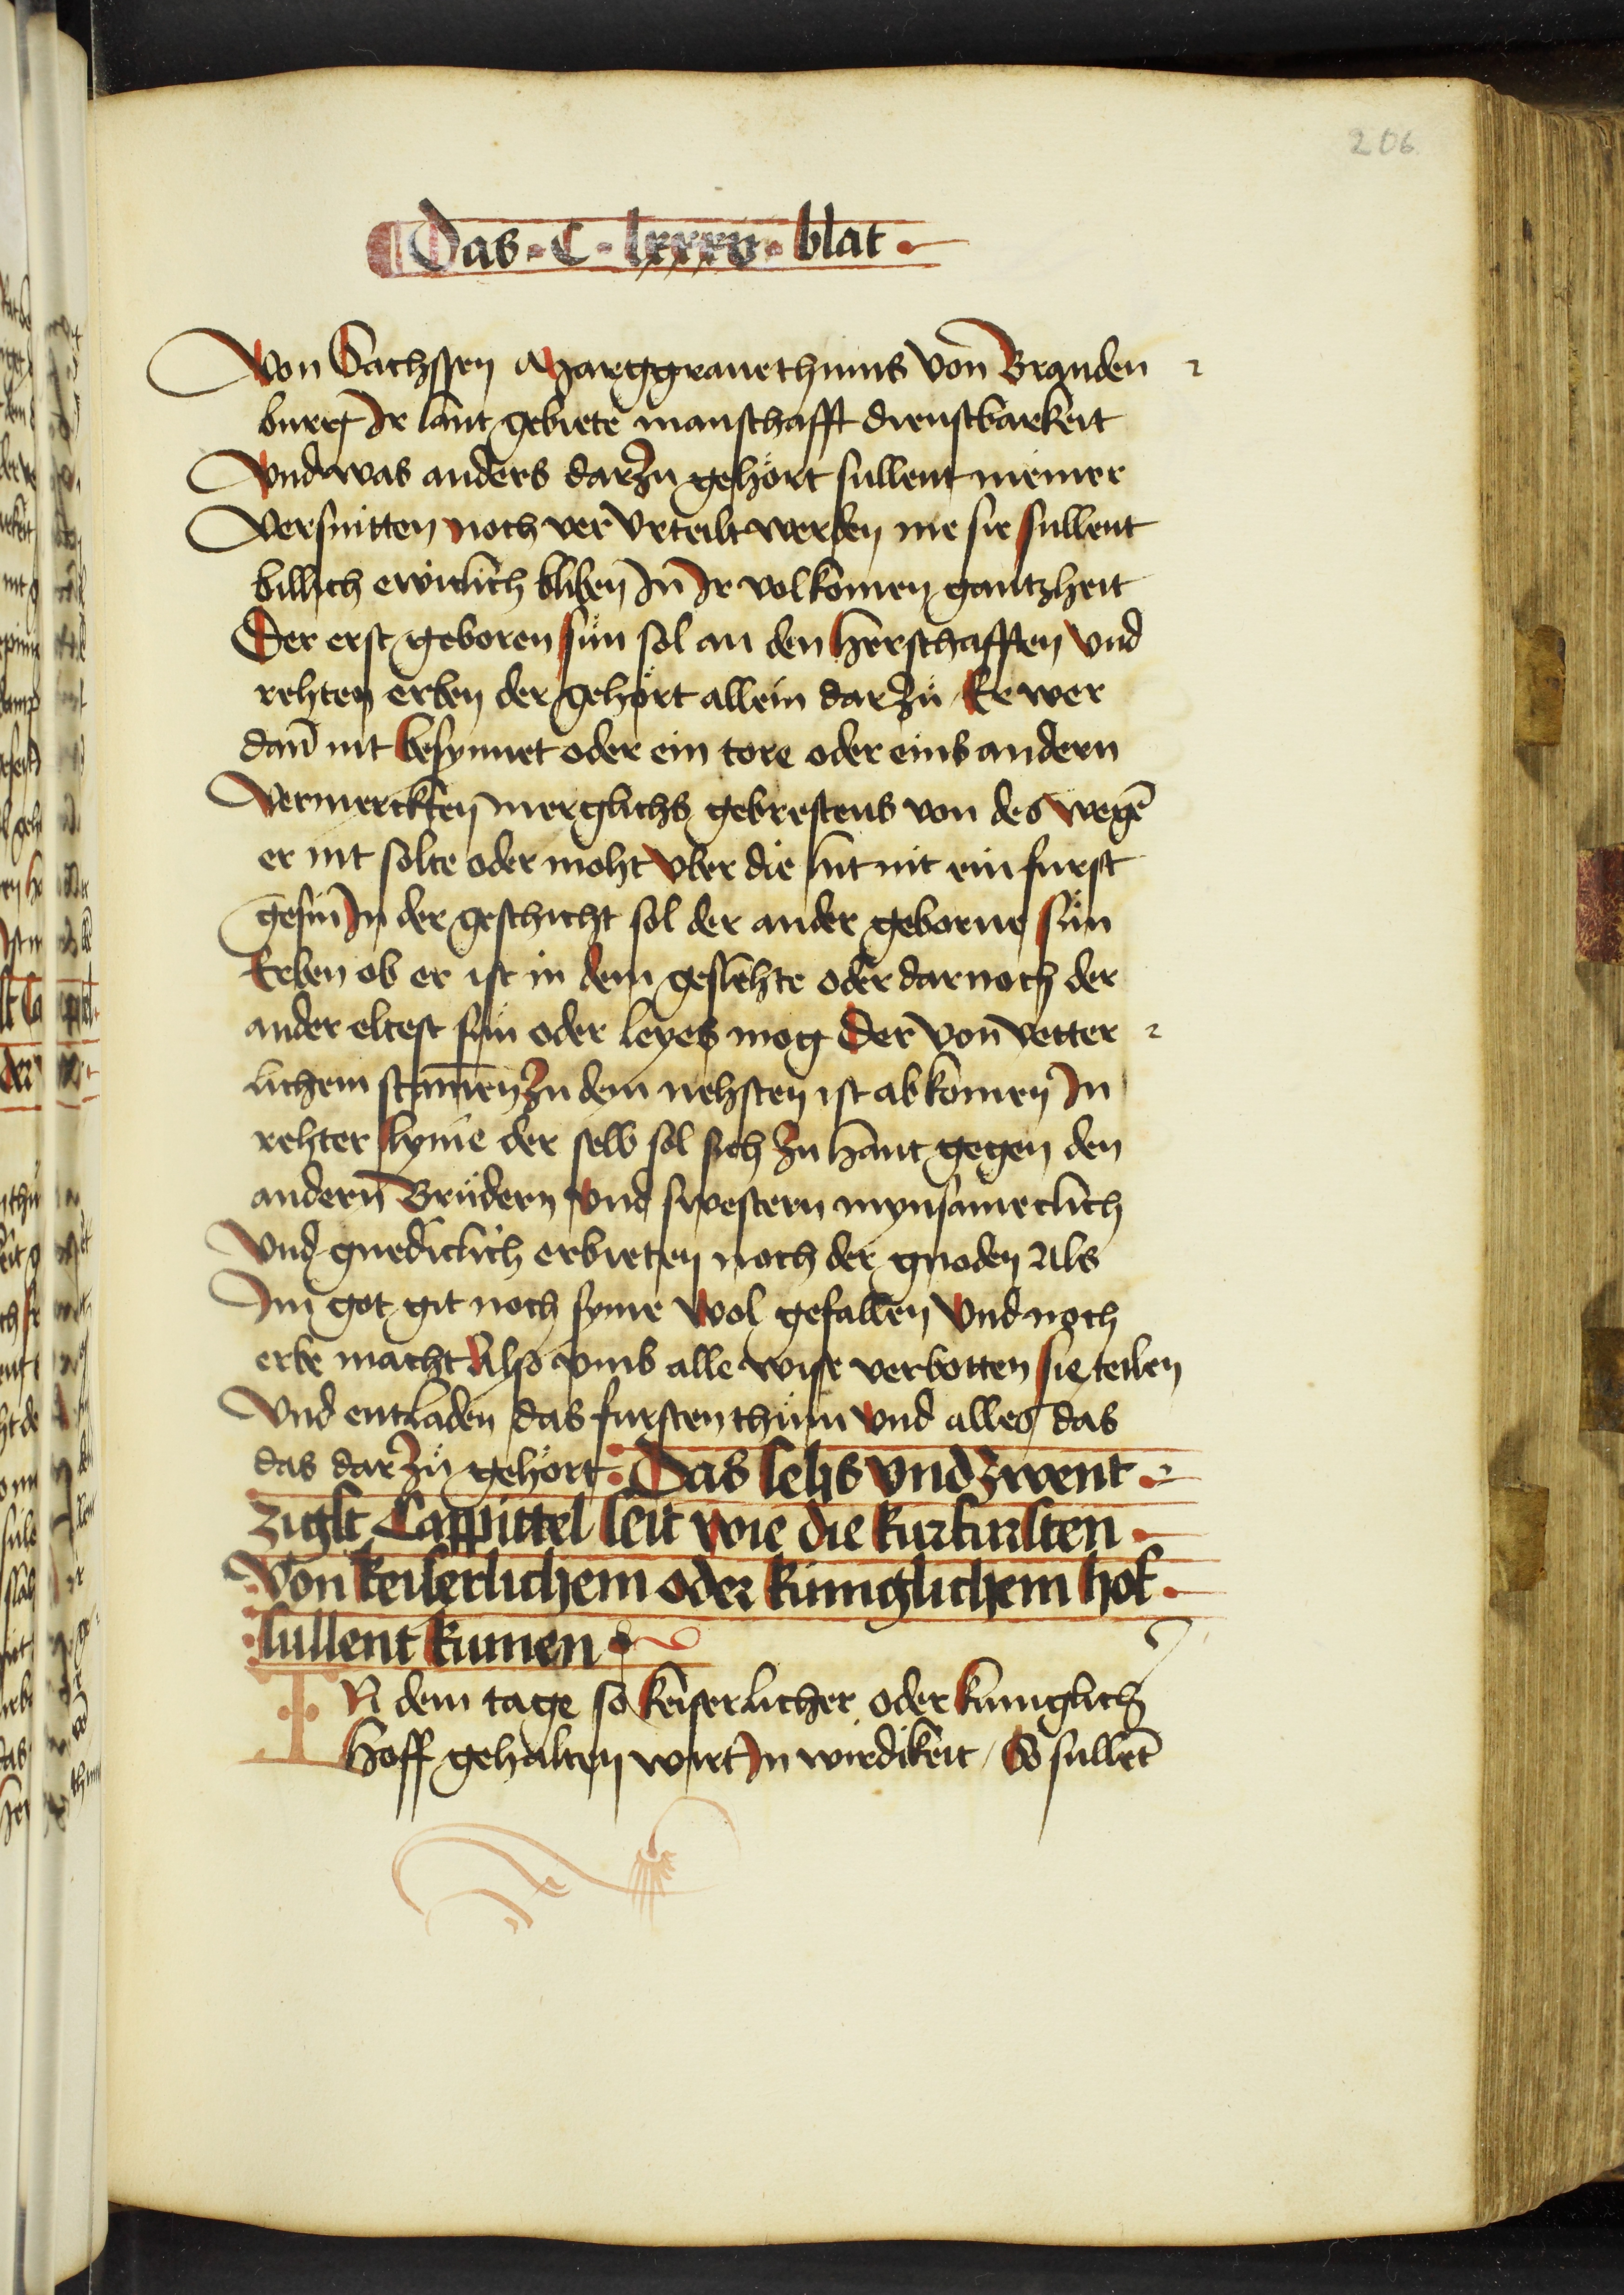 206
Das · C · lxxxv · blat ·
Von Sachssen Marggrauethums von Branden
burg Ir lant gebiete manschafft dienstbarkeit
Vnd was anders darzu gehört sullent niemer
Versnitten noch ver vrteilt werden me sie sullent
billich ewiclich bliben In Ir volkomen gantzheit
Der erst geboren sün sol an den herschafften vnd
rehten erben der gehört allein dar zü Er wer
dan̄ nit besynnet oder ein tore oder eins andern
Vermerckten merglichs gebrestens von des wegē
er nit solte oder moht vber die lut nit ein furst
gesin In der geschicht sol der ander geborne sün
Erben ob er ist in dem geslehte oder dar noch der
ander eltest sün oder leyes mog Der von vetter
lichem stam̄en zu dem nehsten ist abkomen In
rehter lynie der selb sol sich zu hant gegen den
andern Brüdern vnd swestern mynsameclich
Vnd gnediclich erbieten noch der gnoden Als
Im got git noch syme wol gefallen vnd noch
erbe macht Also vmb alle wise verbotten sie teilen
Vnd entladen das furstenthüm vnd alles das
das dar zü gehört · Das sehs vnd zwent
zigst Cappittel seit wie die kurfursten
Von keiserlichem oder kuniglichem hof
sullent kumen
IN dem tage so keiserlicher oder kuniglich
Hoff gehalten wirt In wirdikeit / So sullēt